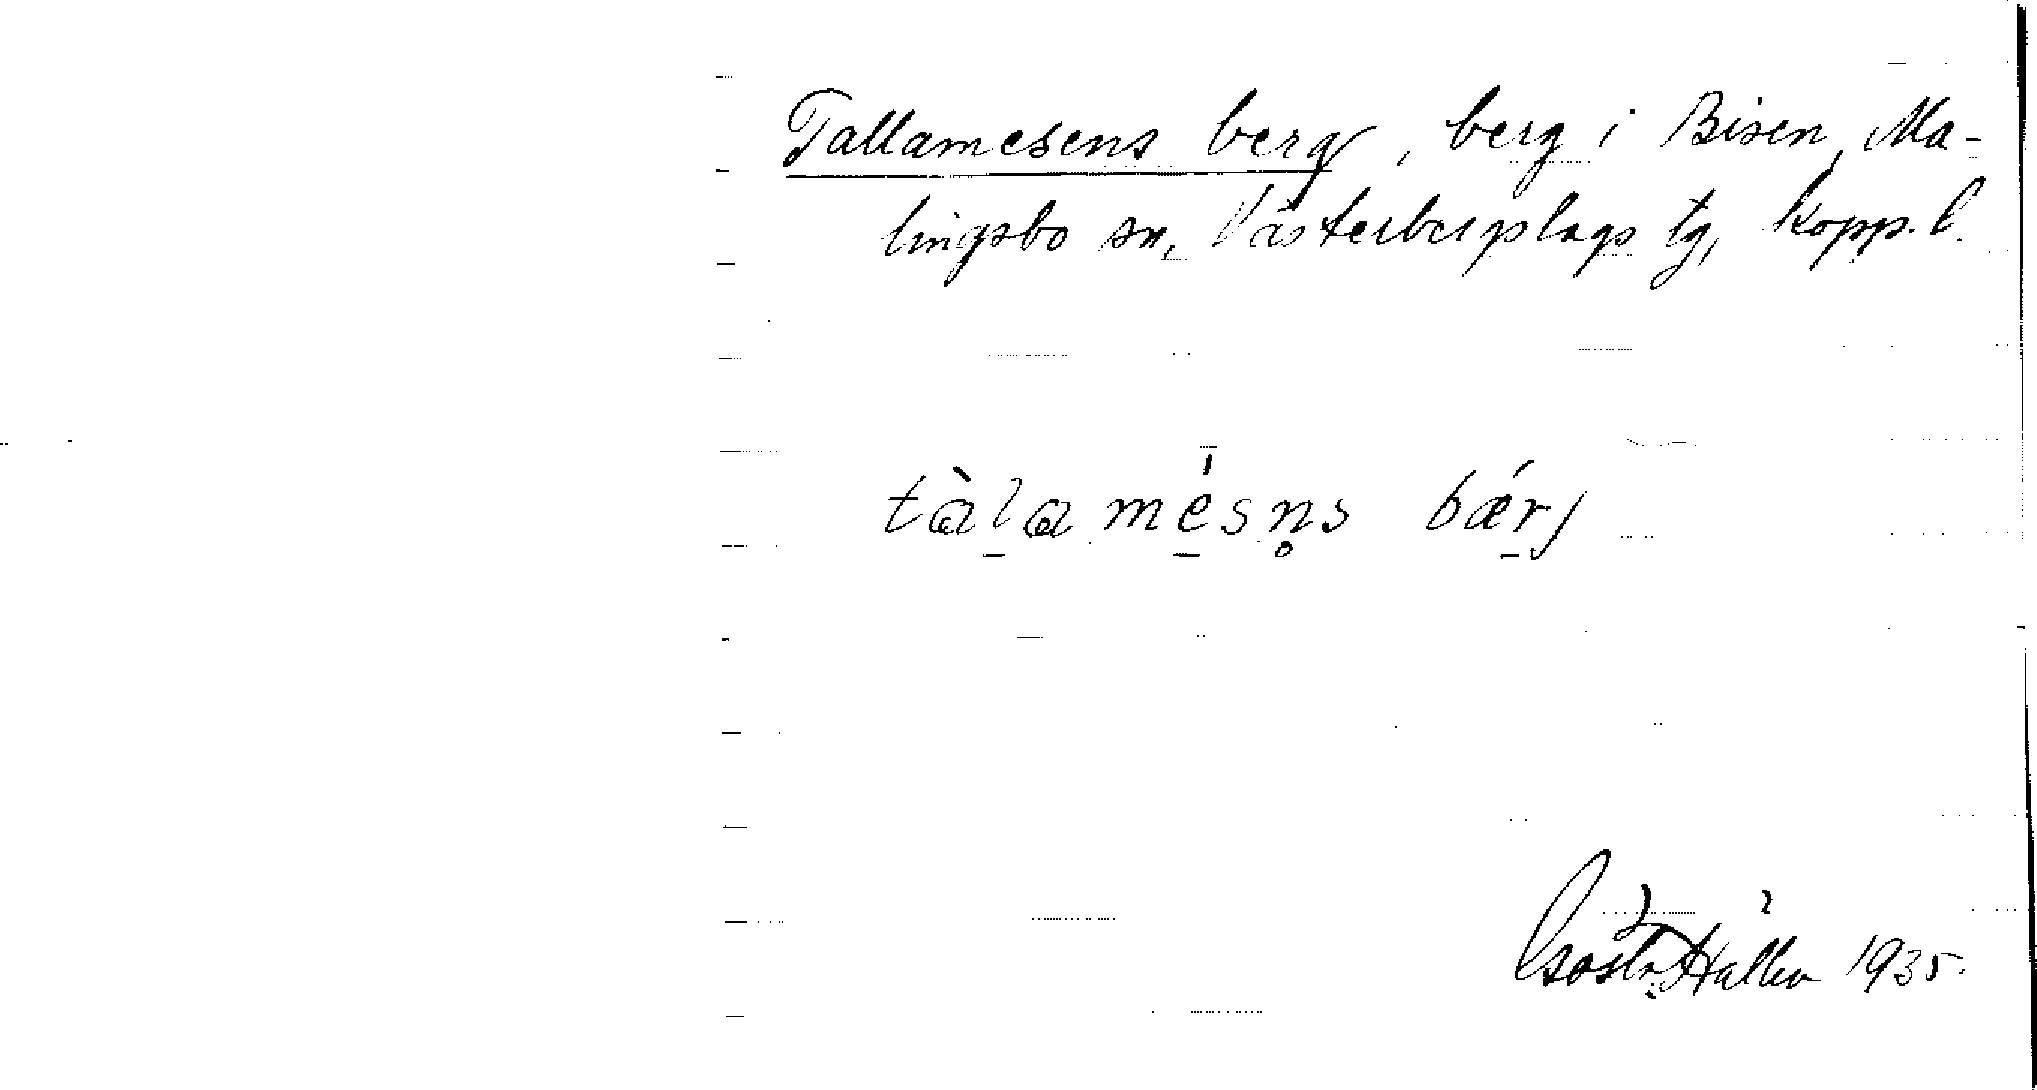 Tallamesens berg, berg i Bisen, Ma-
lingsbo sn, Västerbergslags tg, Kopp. l.
tàl̠a mé̠sn̥s bǽr̠j
Gösta Hallén 1935.